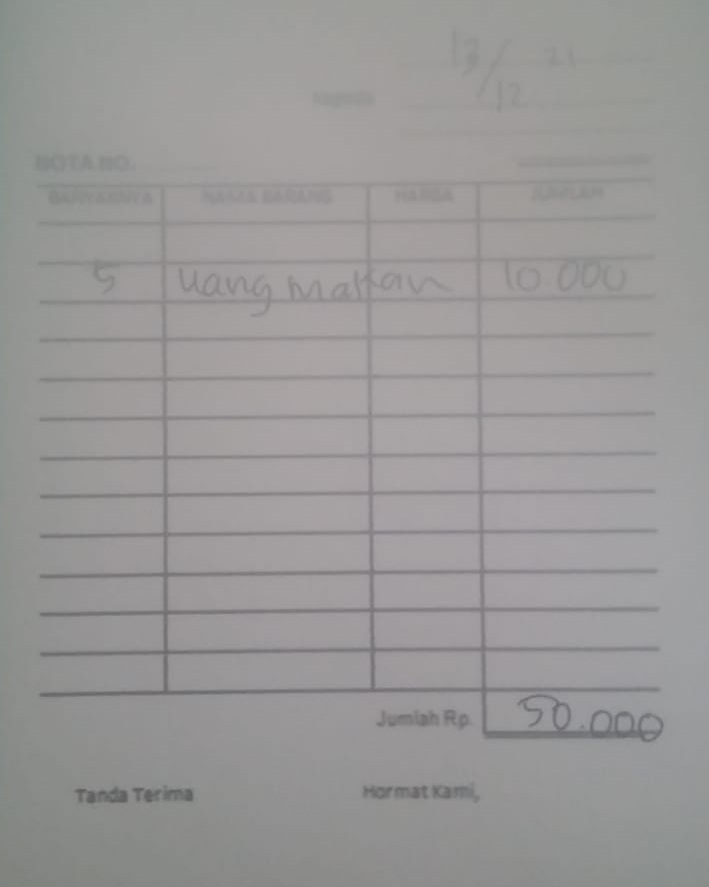 13/12 21
Kepada
NOTA NO.
BANYAKNYA NAMA BARANG HARGA JUMLAH
5 uang makan 10.000
Jumlah Rp. 50.000
Tanda Terima Hormat Kami,